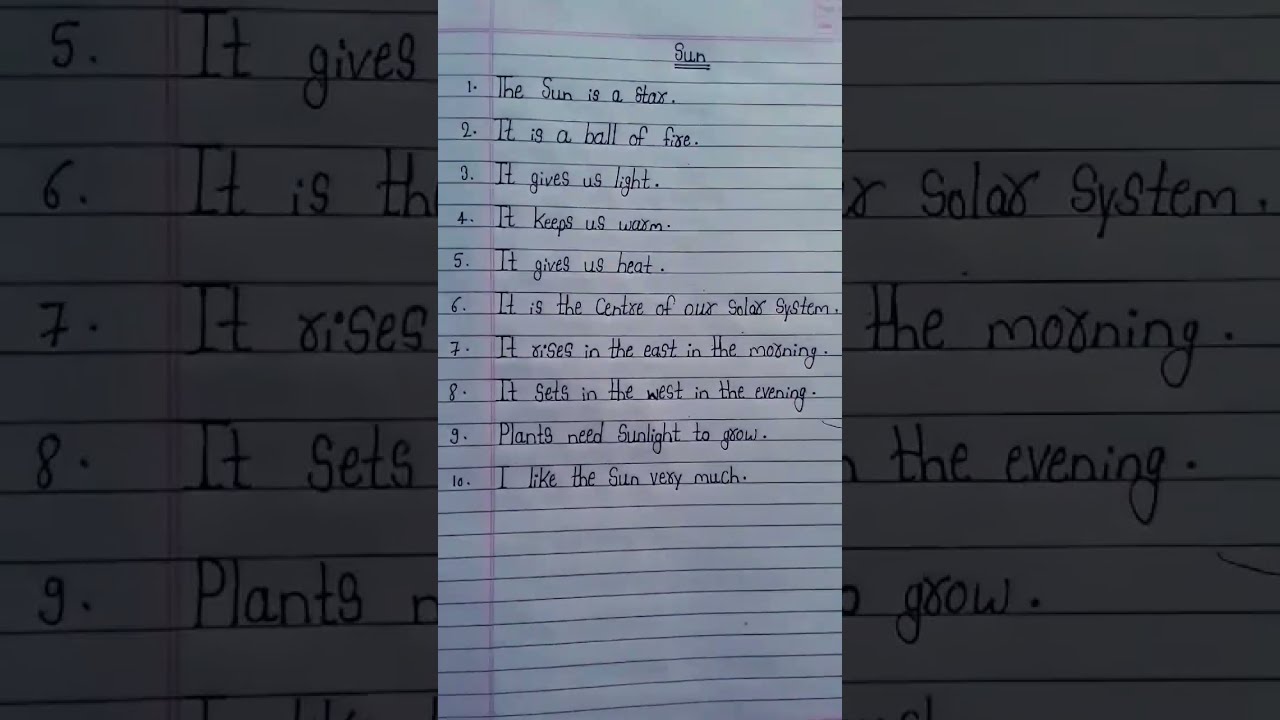 Sun
1. The Sun is a Star.
2. It is a ball of fire.
3. It gives us light.
4. It keeps us warm.
5. It gives us heat.
6. It is the Centre of our Solar System.
7. It rises in the east in the morning.
8. It Sets in the west in the evening.
9. Plants need Sunlight to grow.
10. I like the Sun very much.